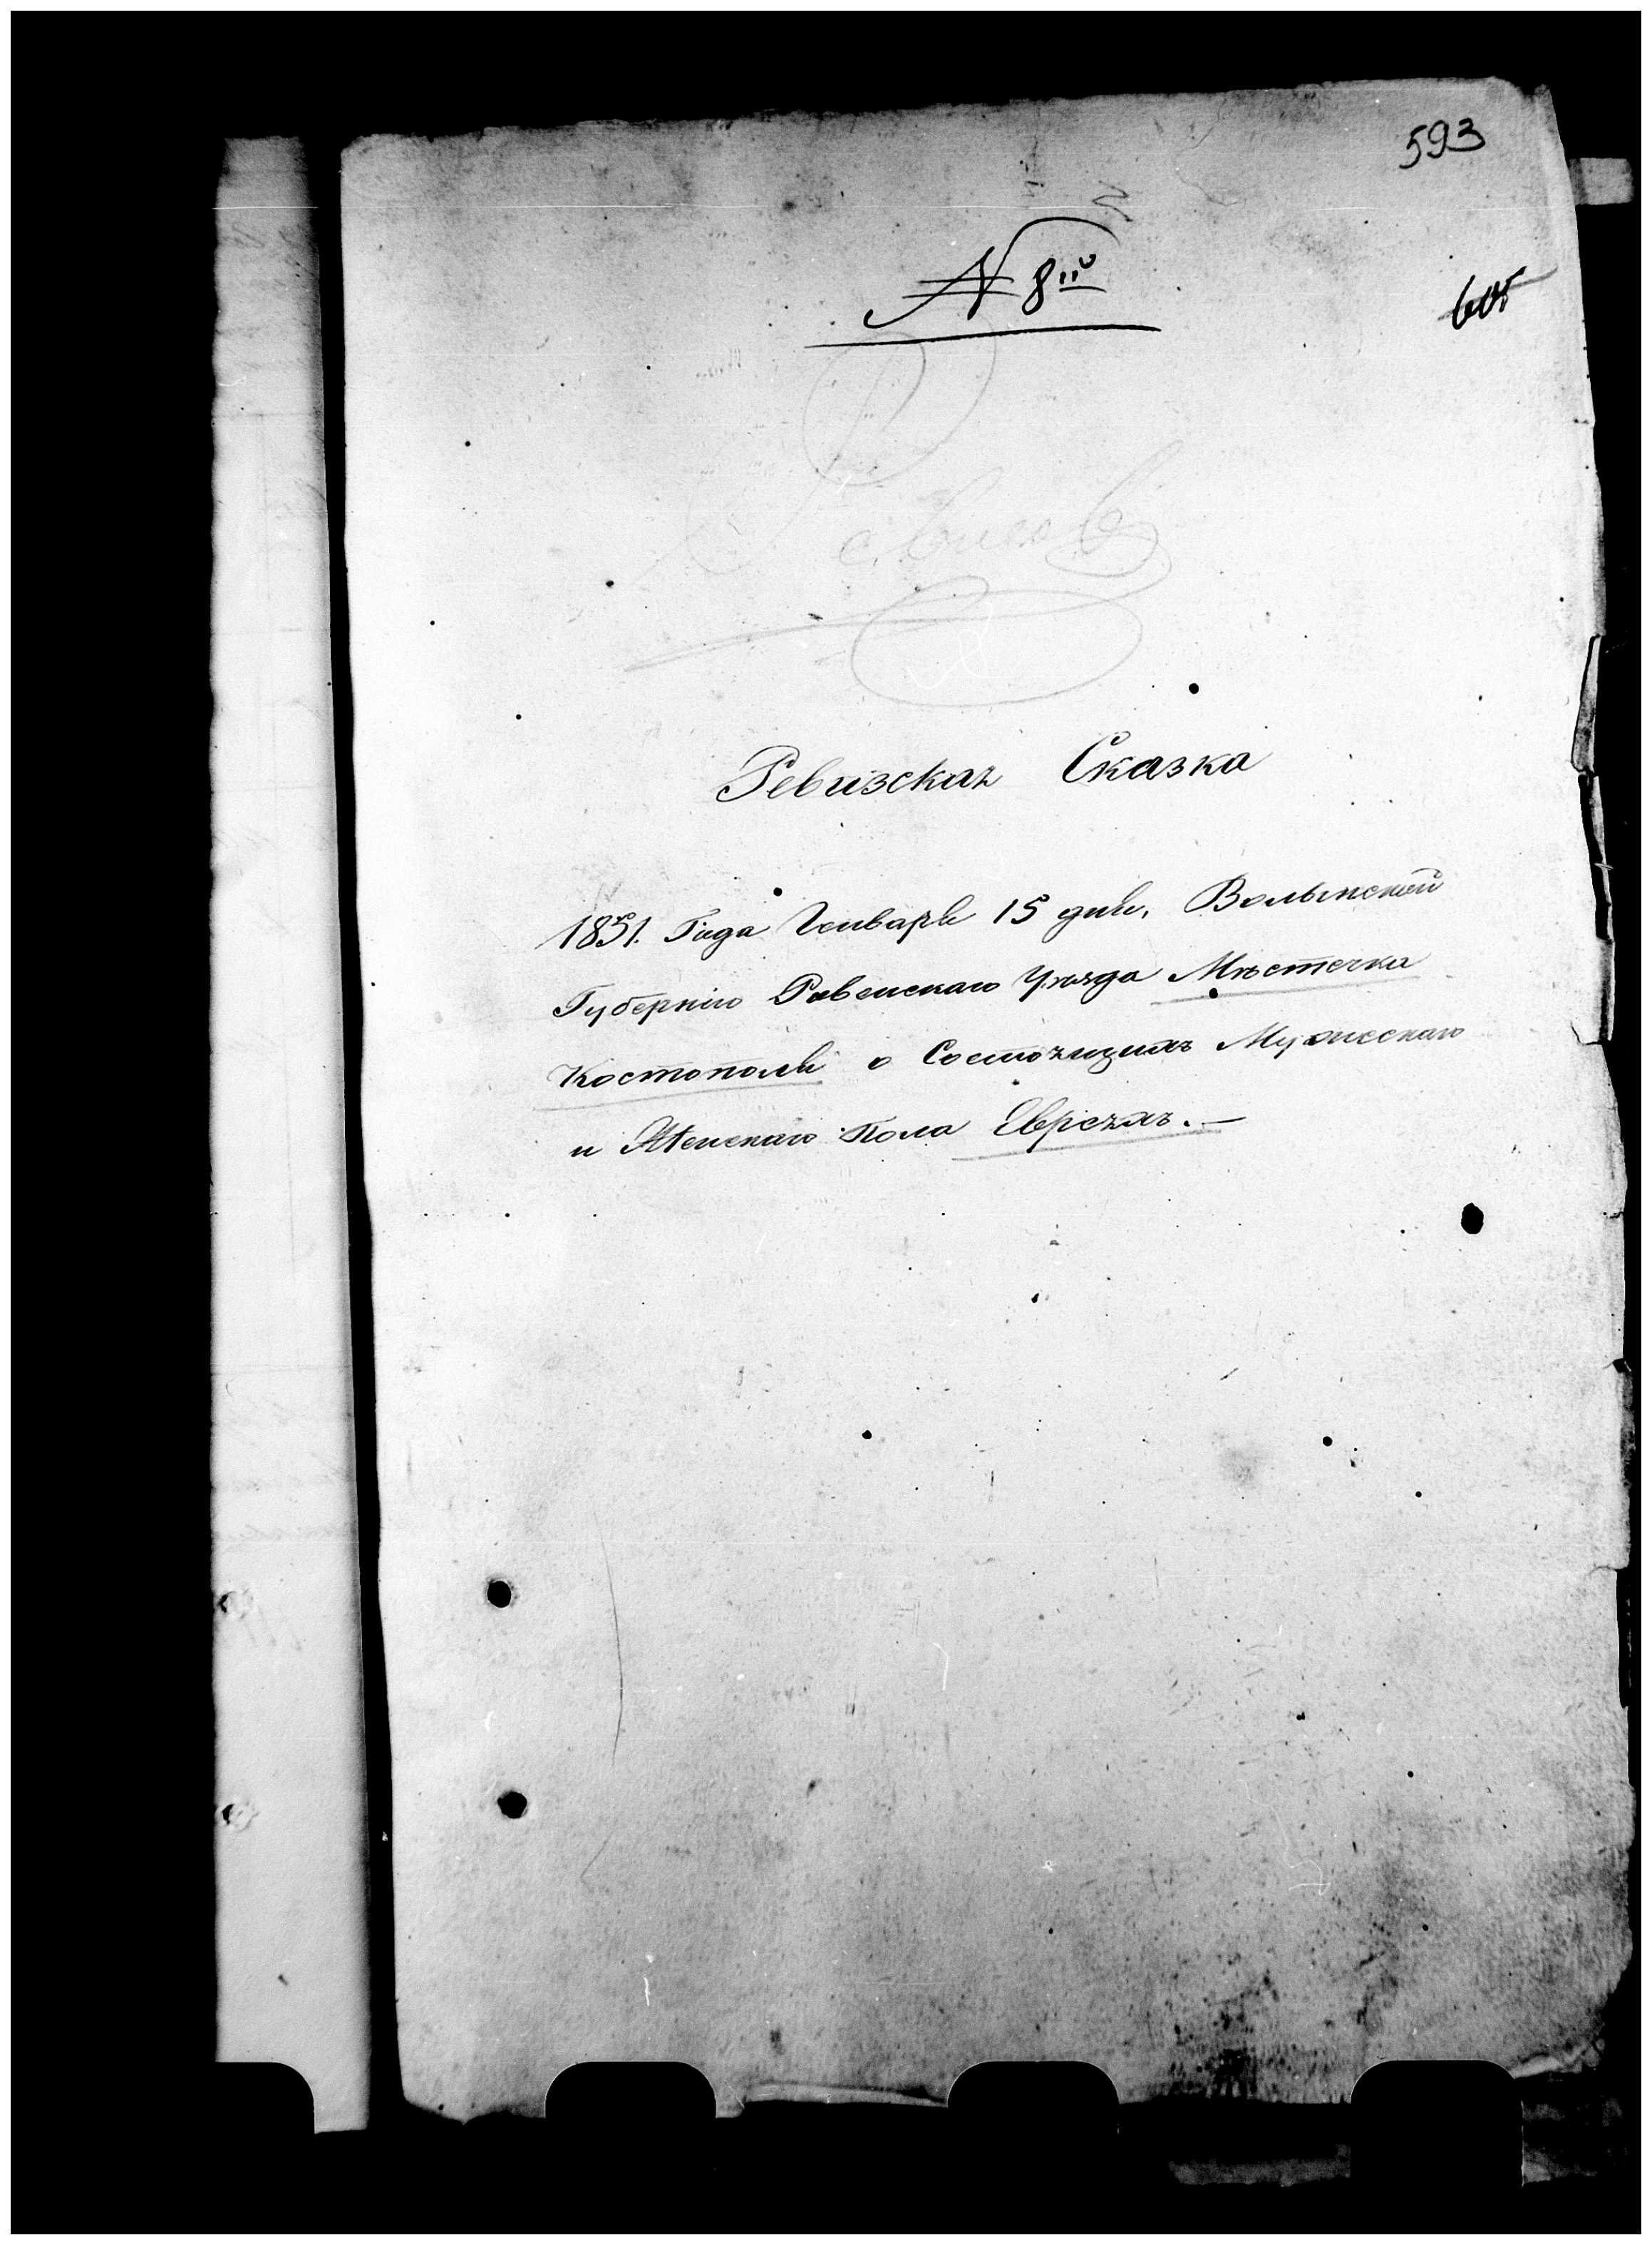 593
№ 8й
605
Ревизская Сказка
1851. Года Генваря 15 дня, Волынской
Губернии Ровенскаго Уѣзда Мѣстечка
Костополя о Состоящихъ Мужескаго
и Женскаго Пола Евреяхъ. —